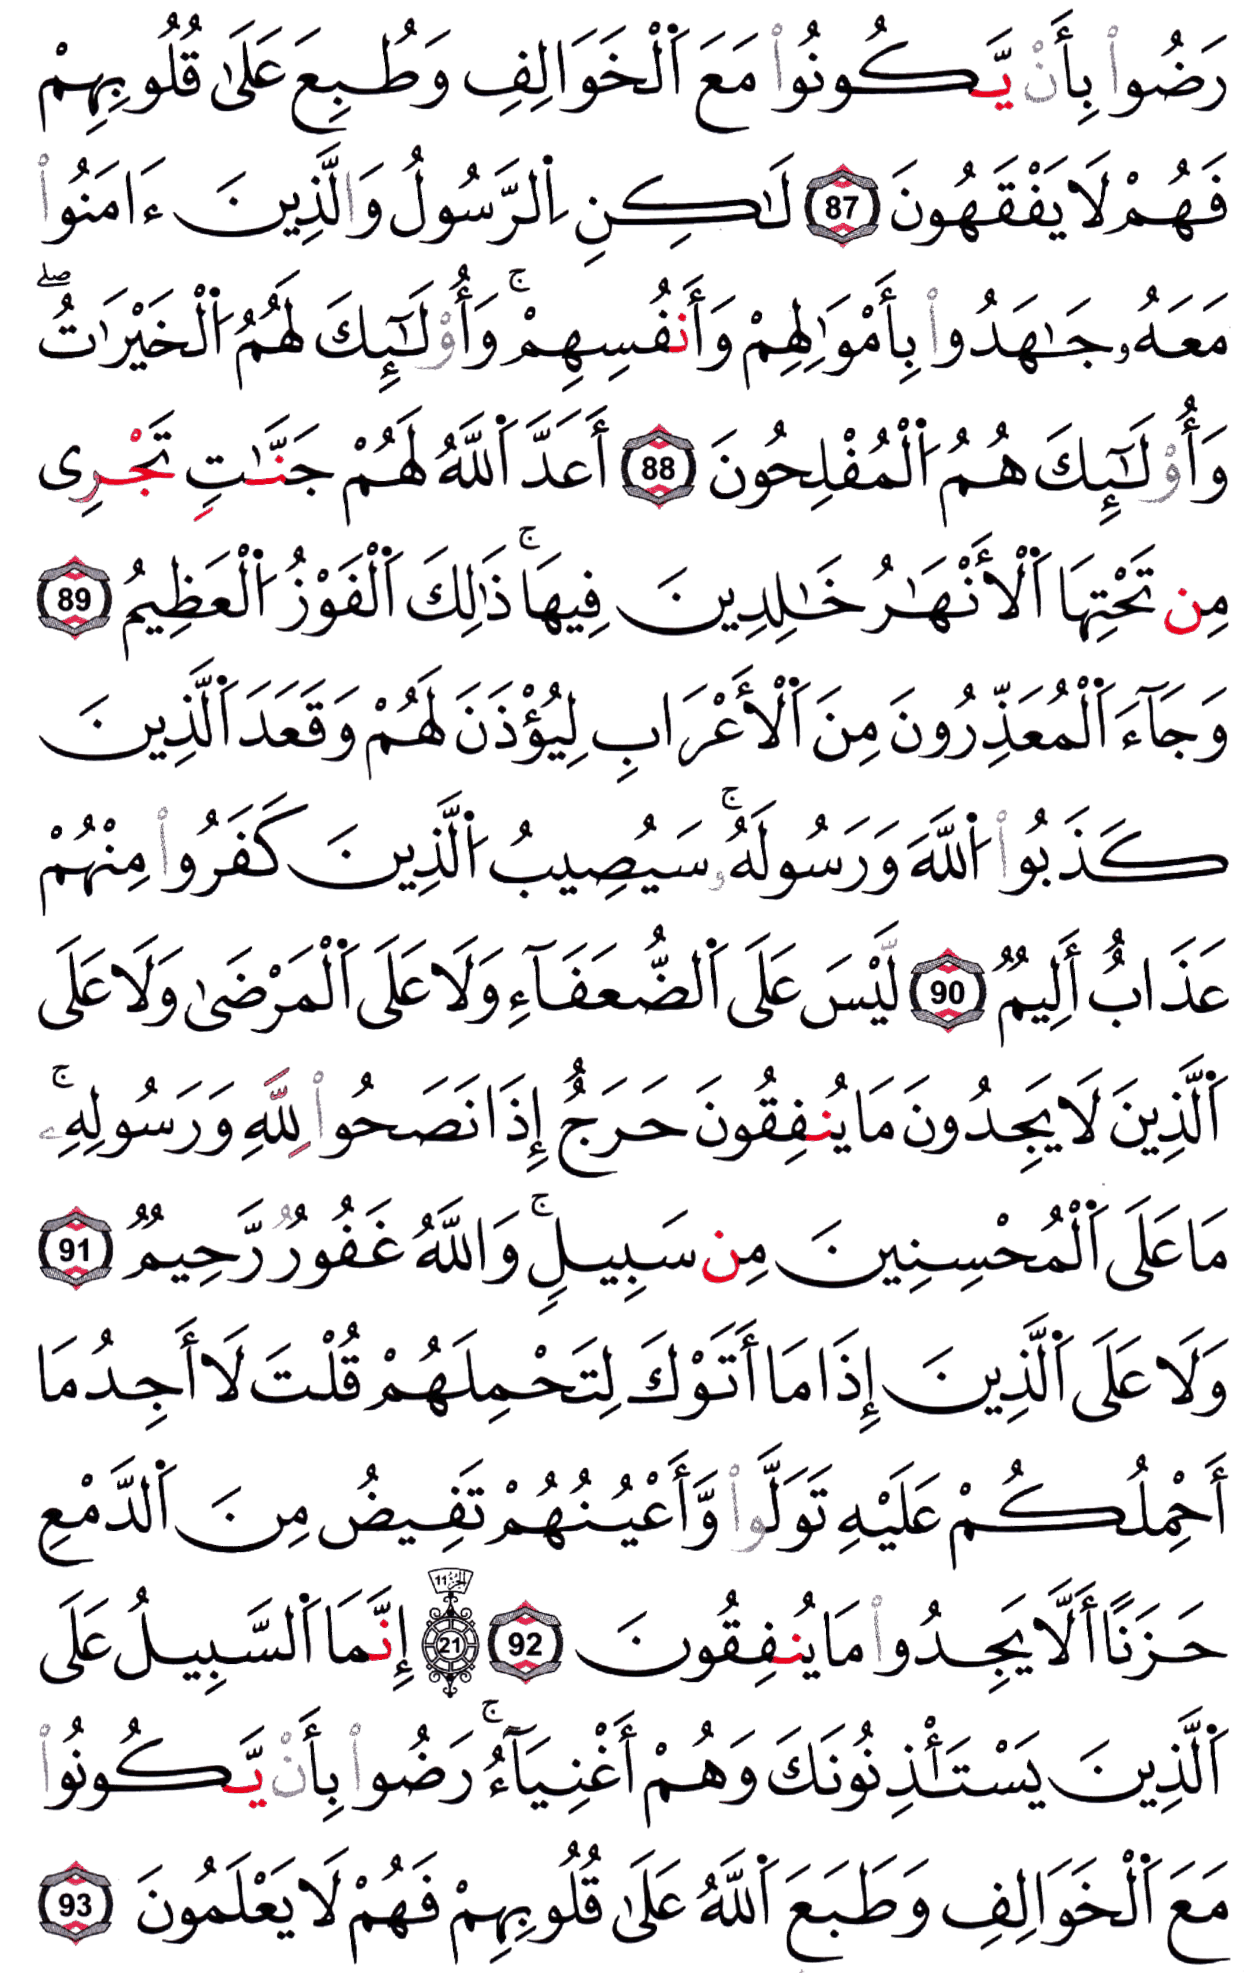 رَضُوا۟ بِأَنْ يَّكُونُوا۟ مَعَ اَ۬لْخَوَالِفِ وَطُبِعَ عَلَىٰ قُلُوبِهِمْ
فَهُمْ لَا يَفْقَهُونَ 87 لَٰكِنِ اِ۬لرَّسُولُ وَالَّذِينَ ءَامَنُوا۟
مَعَهُۥ جَٰهَدُوا۟ بِأَمْوَٰلِهِمْ وَأَنفُسِهِمْۚ وَأُو۟لَٰٓئِكَ لَهُمُ اُ۬لْخَيْرَٰتُۖ
وَأُو۟لَٰٓئِكَ هُمُ اُ۬لْمُفْلِحُونَ 88 أَعَدَّ اَ۬للَّهُ لَهُمْ جَنَّٰتٍ تَجْرِى
مِن تَحْتِهَا اَ۬لْأَنْهَٰرُ خَٰلِدِينَ فِيهَاۚ ذَٰلِكَ اَ۬لْفَوْزُ اُ۬لْعَظِيمُ 89
وَجَآءَ اَ۬لْمُعَذِّرُونَ مِنَ اَ۬لْأَعْرَابِ لِيُؤْذَنَ لَهُمْ وَقَعَدَ اَ۬لَّذِينَ
كَذَبُوا۟ اُ۬للَّهَ وَرَسُولَهُۥۚ سَيُصِيبُ اُ۬لَّذِينَ كَفَرُوا۟ مِنْهُمْ
عَذَابٌ أَلِيمٌ 90 لَّيْسَ عَلَى اَ۬لضُّعَفَآءِ وَلَا عَلَى اَ۬لْمَرْضَىٰ وَلَا عَلَى
اَ۬لَّذِينَ لَا يَجِدُونَ مَا يُنفِقُونَ حَرَجٌ إِذَا نَصَحُوا۟ لِلَّهِ وَرَسُولِهِۦۚ
مَا عَلَى اَ۬لْمُحْسِنِينَ مِن سَبِيلٍۚ وَاللَّهُ غَفُورٌ رَّحِيمٌ 91
وَلَا عَلَى اَ۬لَّذِينَ إِذَا مَا أَتَوْكَ لِتَحْمِلَهُمْ قُلْتَ لَا أَجِدُ مَا
أَحْمِلُكُمْ عَلَيْهِ تَوَلَّوا۟ وَّأَعْيُنُهُمْ تَفِيضُ مِنَ اَ۬لدَّمْعِ
حَزَنًا أَلَّا يَجِدُوا۟ مَا يُنفِقُونَ 92 الجزء 11 21 إِنَّمَا اَ۬لسَّبِيلُ عَلَى
اَ۬لَّذِينَ يَسْتَـْٔذِنُونَكَ وَهُمْ أَغْنِيَآءُۚ رَضُوا۟ بِأَنْ يَّكُونُوا۟
مَعَ اَ۬لْخَوَالِفِ وَطَبَعَ اَ۬للَّهُ عَلَىٰ قُلُوبِهِمْ فَهُمْ لَا يَعْلَمُونَ 93